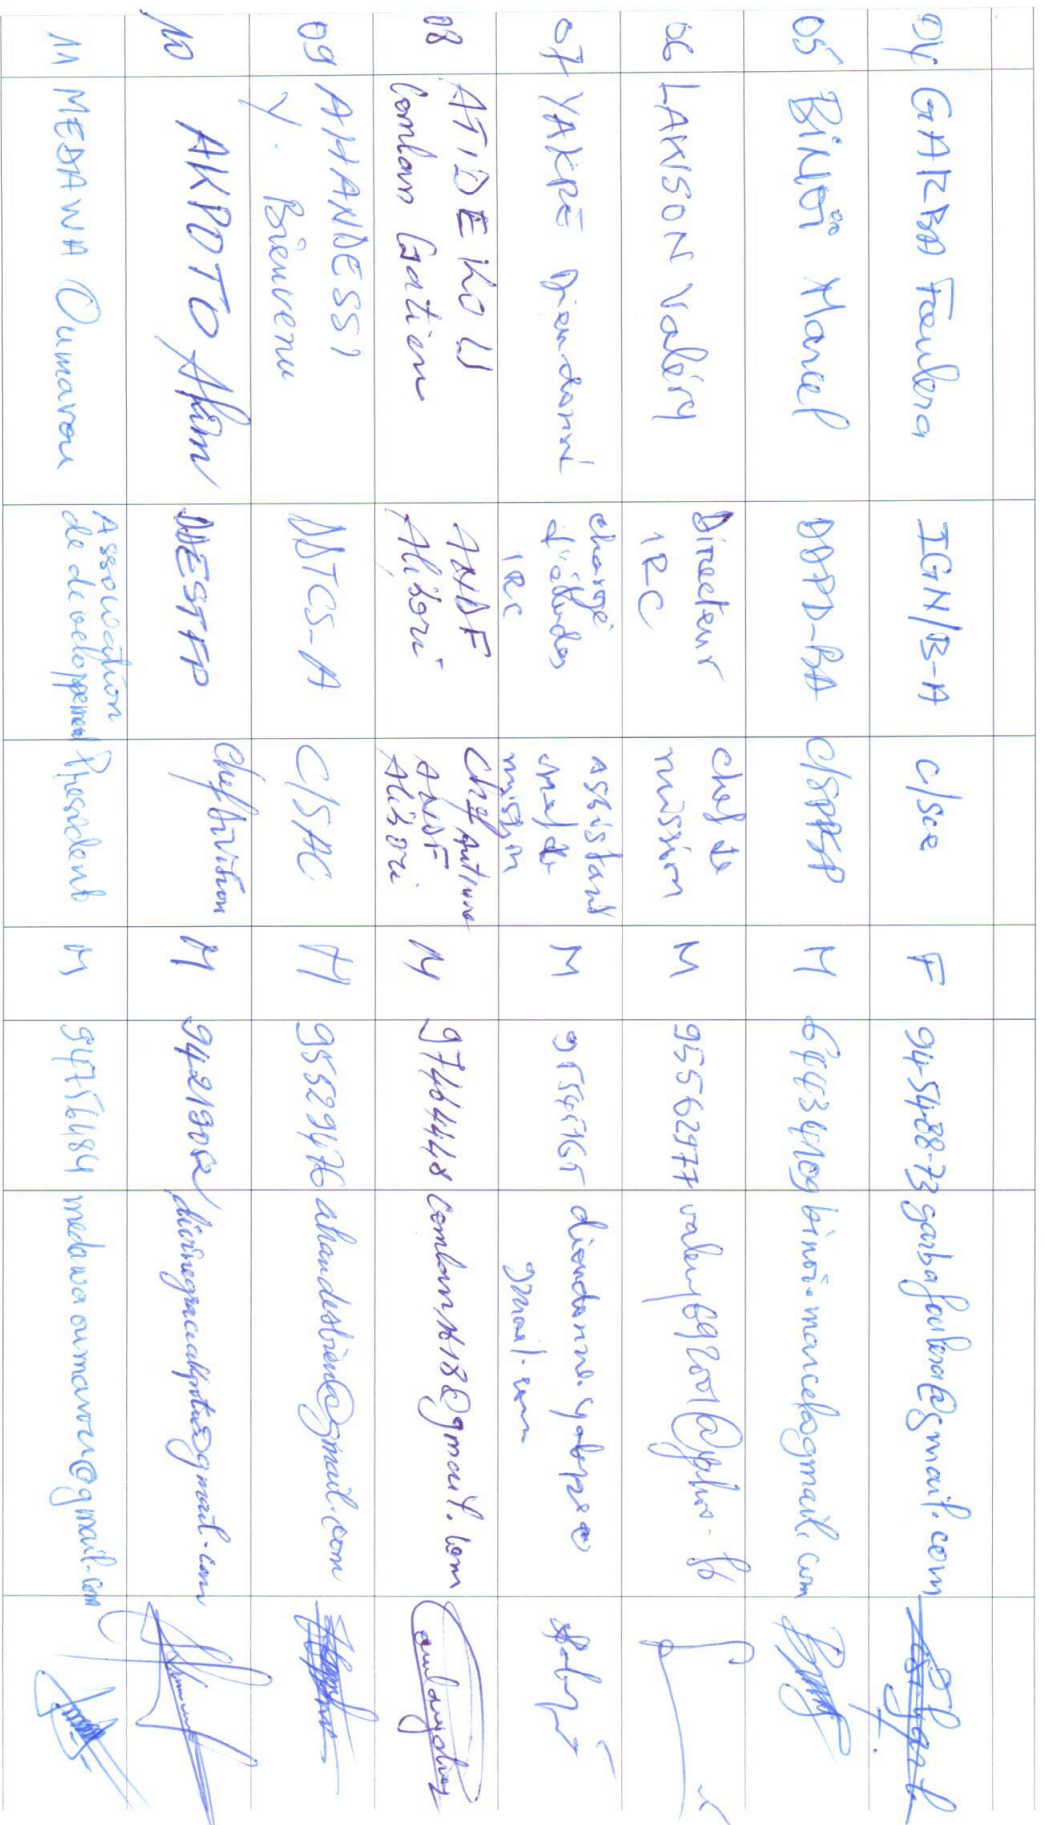 04 GARBA Foulera IGN/B-A C/SCE F 94-54-88-73 garbafoulera@gmail.com
05 BINOI Marcel DDPD-BA M 64434109 binoi.marcel@gmail.com
06 LAHISON Valéry Directeur
IRC Chef de
mission M 95562977
07 YAKPE Dieudonné chargé
d'études
IRC Assistant
chef de
mission M
gmail.com
08 ATIDEKOU
Comlan Gatien ANDF
Alibori Chef Antenne
ANDF
Alibori M 97464448 @gmail.com
09 AHANDESSI
Y. Bienvenu DDTCS-A C/SAC M 95529476 ahandesbien@gmail.com
10 AKPOTO DDESTFP Chef Division M 94219002
11 MEDAWA Oumarou Association
de developpement President M 94756484 medawaoumarou@gmail.com